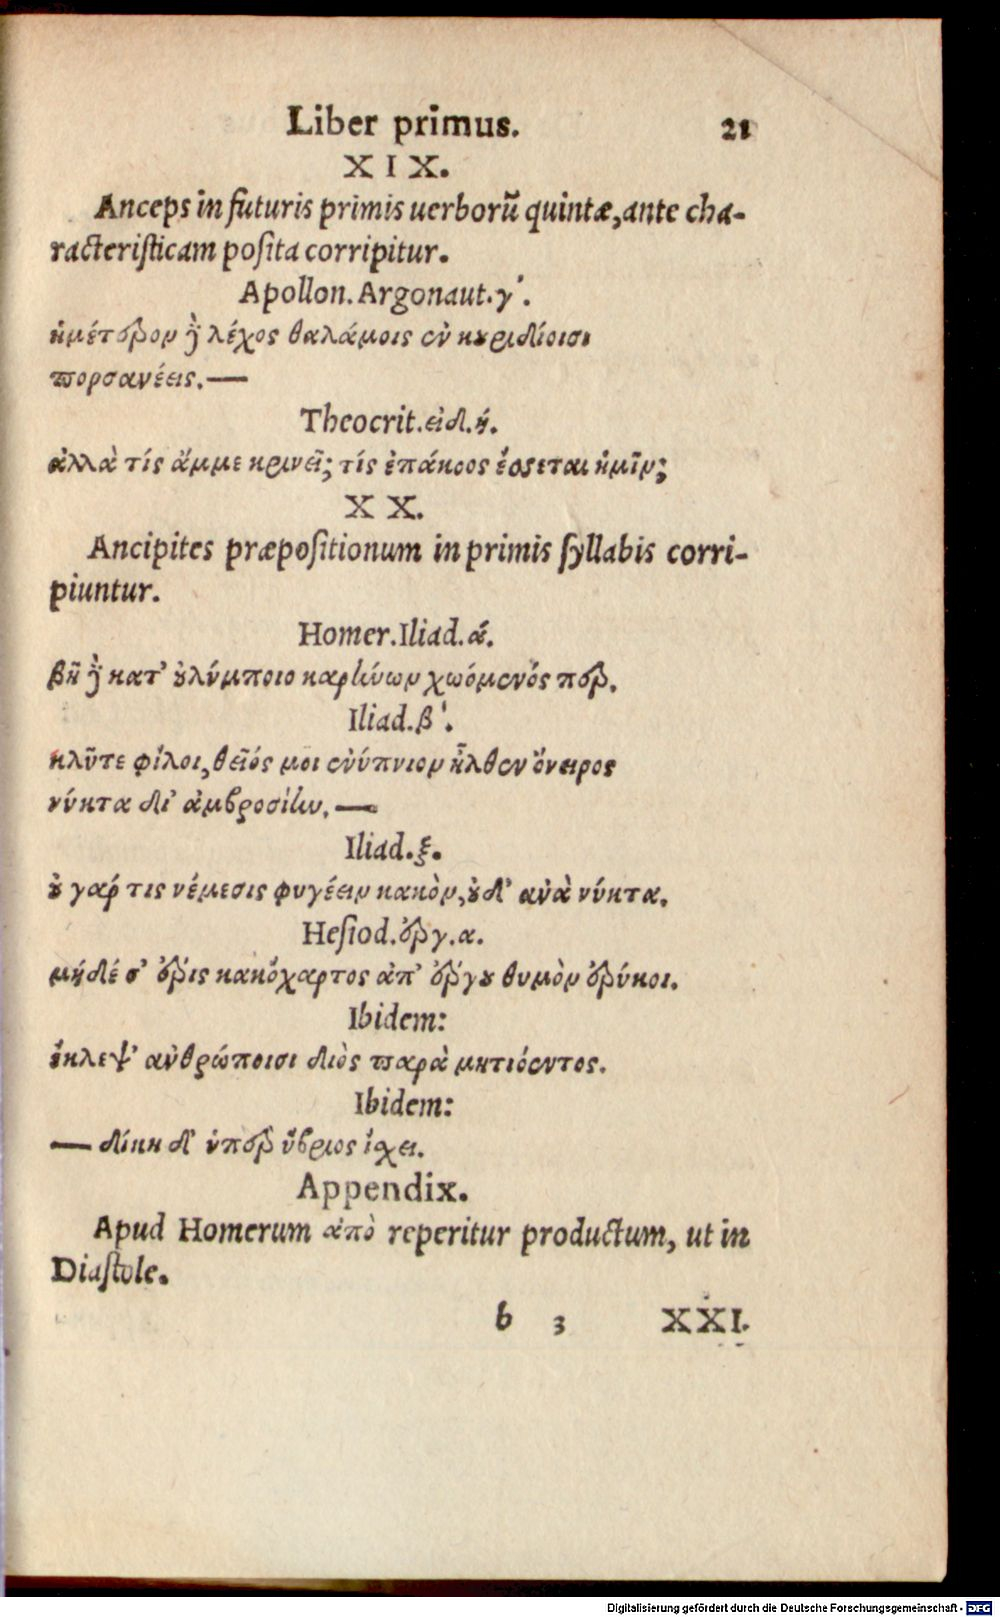 Liber primus. 21
XIX.
Anceps in futuris primis uerborũ quintæ, ante cha-
racteristicam posita corripitur.
Apollon. Argonaut. γ'.
ἡμέτερον δὲ λέχος θαλάμοις ἐν κουριδίοισι
πορσανέεις.—
Theocrit. εἰδ. ή.
ἀλλὰ τίς ἄμμε κρινεῖ; τίς ἐπάκοος ἔσσεται ἡμῖν;
XX.
Ancipites præpositionum in primis syllabis corri-
piuntur.
Homer. Iliad. ά.
βῆ δὲ κατ' οὐλύμποιο καρήνων χωόμενός περ.
Iliad. β'.
κλῦτε φίλοι, θεῖός μοι ἐνύπνιον ἦλθεν ὄνειρος
νύκτα δι' ἀμβροσίην.—
Iliad. ξ.
οὐ γάρ τις νέμεσις φυγέειν κακὸν, οὐδ' ἀνὰ νύκτα.
Hesiod. ἐργ. α.
μήδέ σ' ἔρις κακόχαρτος ἀπ' ἔργου θυμὸν ἐρύκοι.
Ibidem:
ἔκλεψ' ἀνθρώποισι διὸς παρὰ μητιόεντος.
Ibidem:
— δίκη δ' ὑπὲρ ὕβριος ἴχει.
Appendix.
Apud Homerum ἀπὸ reperitur productum, ut in
Diastole.
b 3 XXI.
Digitalisierung gefördert durch die Deutsche Forschungsgemeinschaft - DFG